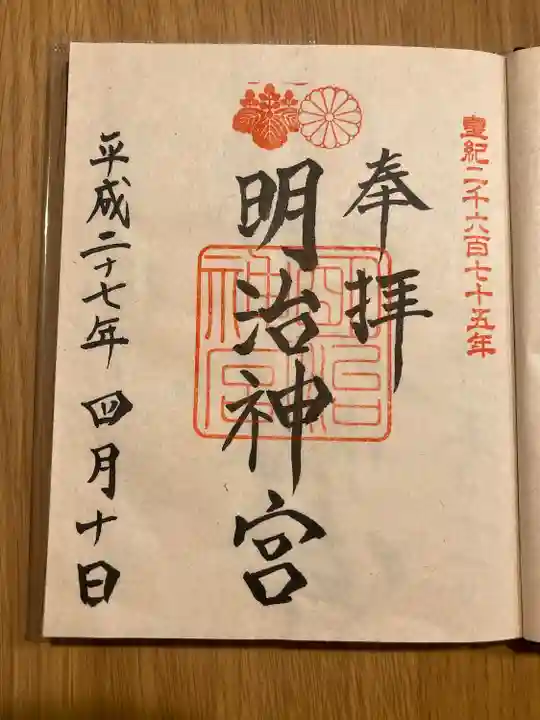 皇紀二千六百七十五年
奉拝
明治神宮
明治神宮
平成二十七年 四月十日